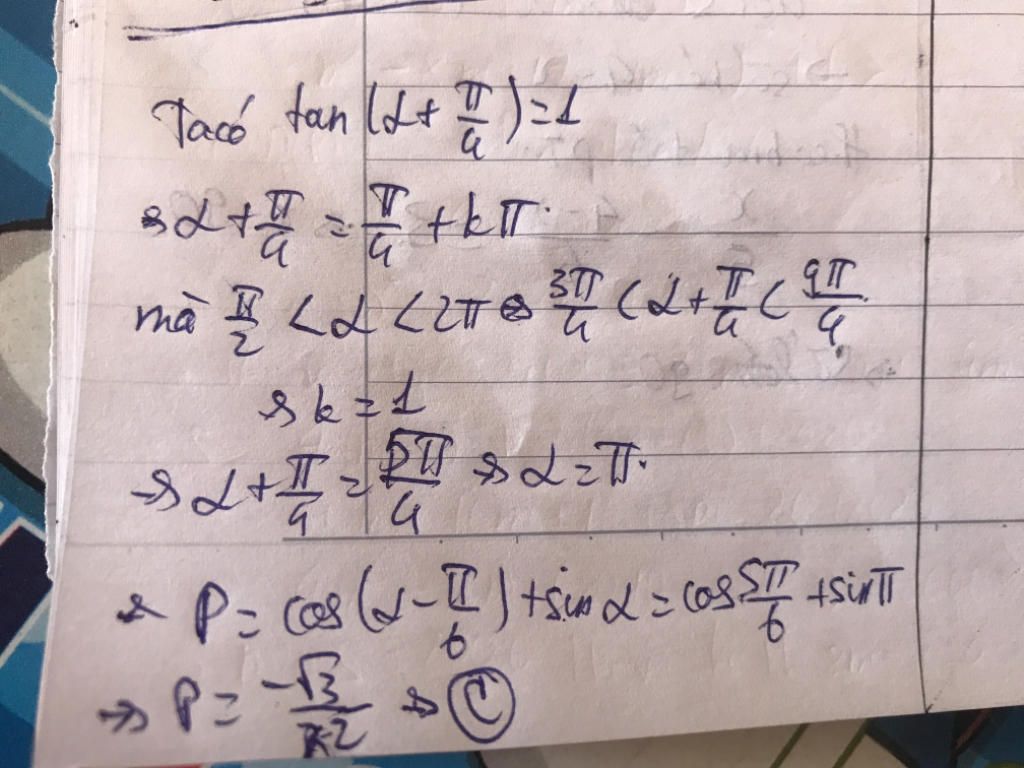 Ta có tan(α + π/4) = 1
→ α + π/4 = π/4 + kπ.
mà π/2 < α < 2π → 3π/4 < α + π/4 < 9π/4.
→ k = 1
→ α + π/4 = 5π/4 → α = π.
→ P = cos(α - π/6) + sin α = cos 5π/6 + sin π
→ P = -√3/2 → C